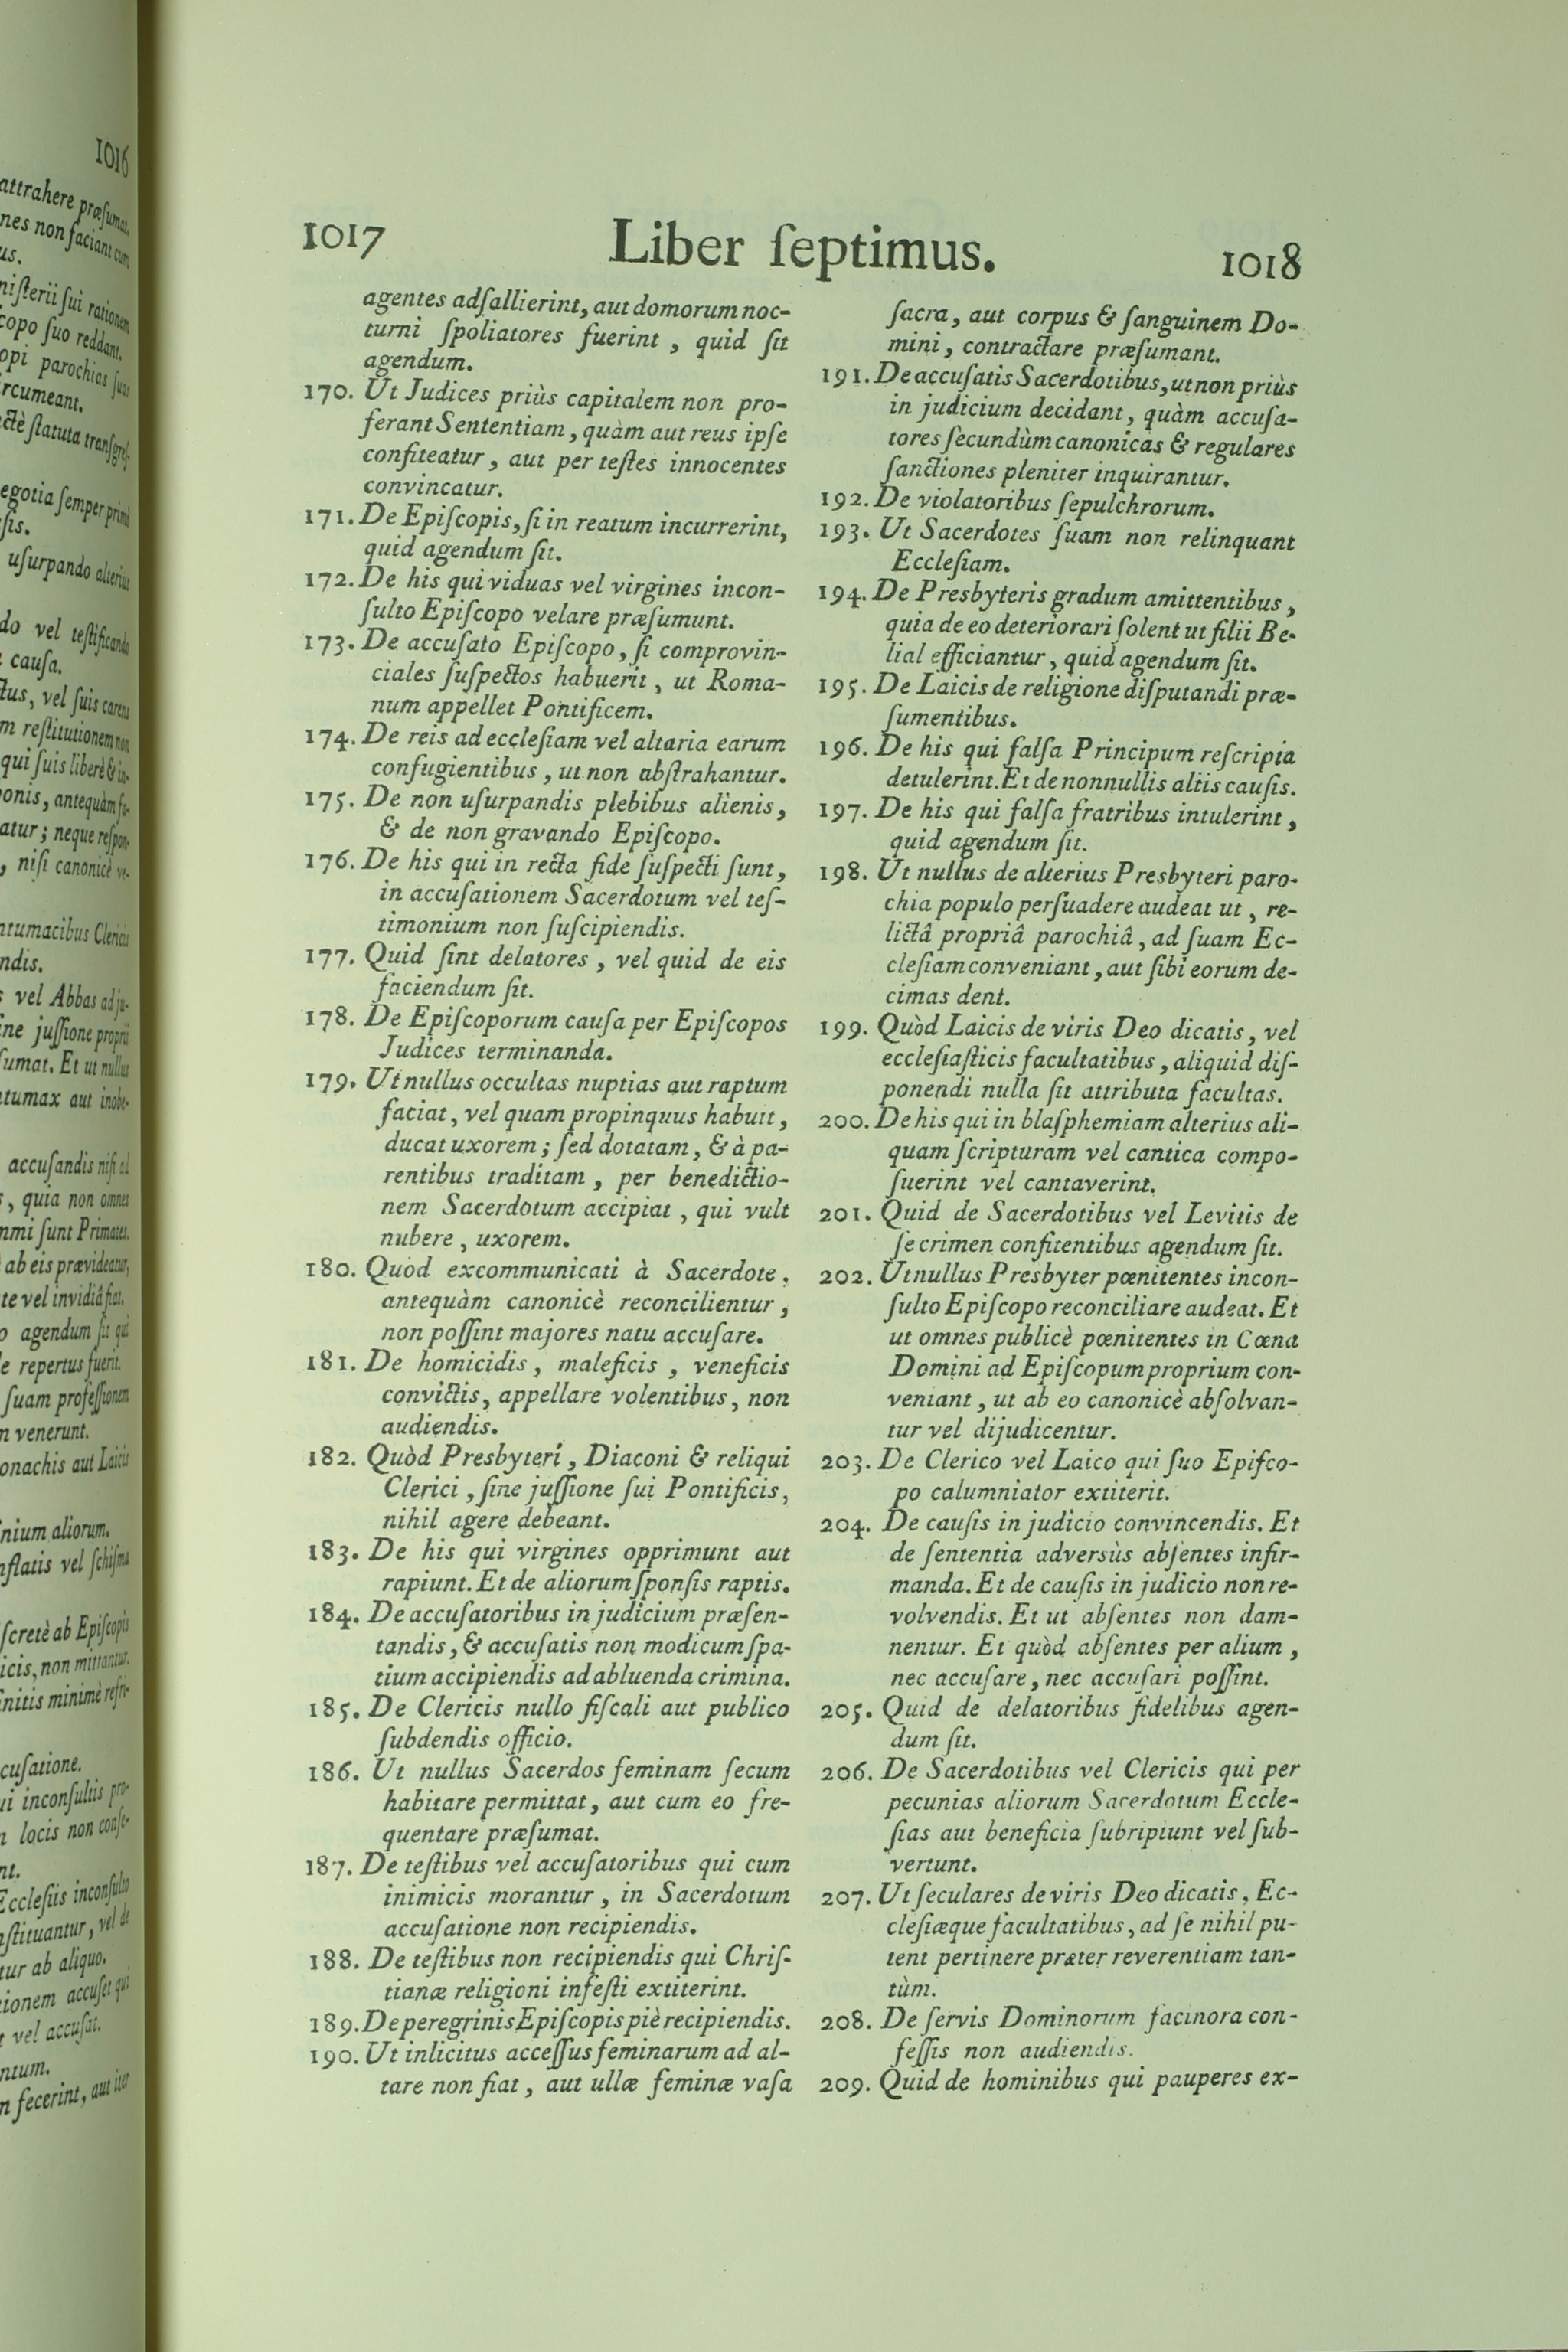 1016
attrahere præſumat,
nes non faciant cum
us.
niſterii ſui rationem
copo ſuo reddant.
opi parochias ſuas
rcumeant.
ctè ſtatuta tranſgreſ-
egotia ſemper primò
ſis.
uſurpando alterius
do vel teſtificando
cauſa.
tus, vel ſuis carens
m reſtitutionem non
qui ſuis liberè & in-
onis, antequàm ſu-
atur; neque reſpon-
, niſi canonicè ve-
ntumacibus Clericis
ndis.
s vel Abbas ad ju-
ine juſſione proprii
ſumat. Et ut nullus
tumax aut inobe-
accuſandis niſi ad
s, quia non omnes
mmi ſunt Primates.
ab eis prævideatur,
te vel invidiâ fiat.
o agendum ſit qui
e repertus fuerit.
ſuam profeſſionem
n venerunt.
onachis aut Laicis
nium aliorum.
nflatis vel ſchiſma
ſcretè ab Epiſcopis
icis, non mittantur.
initis minimè refri-
cuſatione.
ui inconſultis pro-
n locis non conſe-
nt.
Eccleſiis inconſulto
nſtituantur, vel de
tur ab aliquo.
ionem accuſet qui
t vel accuſat.
ntum.
n fecerint, aut iter
1017
Liber ſeptimus.
1018
agentes adſallierint, aut domorum noc-
turni ſpoliatores fuerint, quid ſit
agendum.
170. Ut Judices priùs capitalem non pro-
ferant Sententiam, quàm aut reus ipſe
confiteatur, aut per teſtes innocentes
convincatur.
171. De Epiſcopis, ſi in reatum incurrerint,
quid agendum ſit.
172. De his qui viduas vel virgines incon-
ſulto Epiſcopo velare præſumunt.
173. De accuſato Epiſcopo, ſi comprovin-
ciales ſuſpectos habuerit, ut Roma-
num appellet Pontificem.
174. De reis ad eccleſiam vel altaria earum
confugientibus, ut non abſtrahantur.
175. De non uſurpandis plebibus alienis,
& de non gravando Epiſcopo.
176. De his qui in recta fide ſuſpecti ſunt,
in accuſationem Sacerdotum vel teſ-
timonium non ſuſcipiendis.
177. Quid ſint delatores, vel quid de eis
faciendum ſit.
178. De Epiſcoporum cauſa per Epiſcopos
Judices terminanda.
179. Ut nullus occultas nuptias aut raptum
faciat, vel quam propinquus habuit,
ducat uxorem; ſed dotatam, & à pa-
rentibus traditam, per benedictio-
nem Sacerdotum accipiat, qui vult
nubere, uxorem.
180. Quod excommunicati à Sacerdote,
antequàm canonicè reconcilientur,
non poſſint majores natu accuſare.
181. De homicidis, maleficis, veneficis
convictis, appellare volentibus, non
audiendis.
182. Quòd Presbyteri, Diaconi & reliqui
Clerici, ſine juſſione ſui Pontificis,
nihil agere debeant.
183. De his qui virgines opprimunt aut
rapiunt. Et de aliorum ſponſis raptis.
184. De accuſatoribus in judicium præſen-
tandis, & accuſatis non modicum ſpa-
tium accipiendis ad abluenda crimina.
185. De Clericis nullo fiſcali aut publico
ſubdendis officio.
186. Ut nullus Sacerdos feminam ſecum
habitare permittat, aut cum eo fre-
quentare præſumat.
187. De teſtibus vel accuſatoribus qui cum
inimicis morantur, in Sacerdotum
accuſatione non recipiendis.
188. De teſtibus non recipiendis qui Chriſ-
tianæ religioni infeſti extiterint.
189. De peregrinis Epiſcopis piè recipiendis.
190. Ut inlicitus acceſſus feminarum ad al-
tare non fiat, aut ullæ feminæ vaſa
ſacra, aut corpus & ſanguinem Do-
mini, contractare præſumant.
191. De accuſatis Sacerdotibus, ut non priùs
in judicium decidant, quàm accuſa-
tores ſecundùm canonicas & regulares
ſanctiones pleniter inquirantur.
192. De violatoribus ſepulchrorum.
193. Ut Sacerdotes ſuam non relinquant
Eccleſiam.
194. De Presbyteris gradum amittentibus,
quia de eo deteriorari ſolent ut filii Be-
lial efficiantur, quid agendum ſit.
195. De Laicis de religione diſputandi præ-
ſumentibus.
196. De his qui falſa Principum reſcripta
detulerint. Et de nonnullis aliis cauſis.
197. De his qui falſa fratribus intulerint,
quid agendum ſit.
198. Ut nullus de alterius Presbyteri paro-
chia populo perſuadere audeat ut, re-
lictâ propriâ parochiâ, ad ſuam Ec-
cleſiam conveniant, aut ſibi eorum de-
cimas dent.
199. Quòd Laicis de viris Deo dicatis, vel
eccleſiaſticis facultatibus, aliquid diſ-
ponendi nulla ſit attributa facultas.
200. De his qui in blaſphemiam alterius ali-
quam ſcripturam vel cantica compo-
ſuerint vel cantaverint.
201. Quid de Sacerdotibus vel Levitis de
ſe crimen confitentibus agendum ſit.
202. Ut nullus Presbyter pœnitentes incon-
ſulto Epiſcopo reconciliare audeat. Et
ut omnes publicè pœnitentes in Cœna
Domini ad Epiſcopum proprium con-
veniant, ut ab eo canonicè abſolvan-
tur vel dijudicentur.
203. De Clerico vel Laico qui ſuo Epiſco-
po calumniator extiterit.
204. De cauſis in judicio convincendis. Et
de ſententia adversùs abſentes infir-
manda. Et de cauſis in judicio non re-
volvendis. Et ut abſentes non dam-
nentur. Et quòd abſentes per alium,
nec accuſare, nec accuſari poſſint.
205. Quid de delatoribus fidelibus agen-
dum ſit.
206. De Sacerdotibus vel Clericis qui per
pecunias aliorum Sacerdotum Eccle-
ſias aut beneficia ſubripiunt vel ſub-
vertunt.
207. Ut ſeculares de viris Deo dicatis, Ec-
cleſiæque facultatibus, ad ſe nihil pu-
tent pertinere præter reverentiam tan-
tùm.
208. De ſervis Dominorum facinora con-
feſſis non audiendis.
209. Quid de hominibus qui pauperes ex-